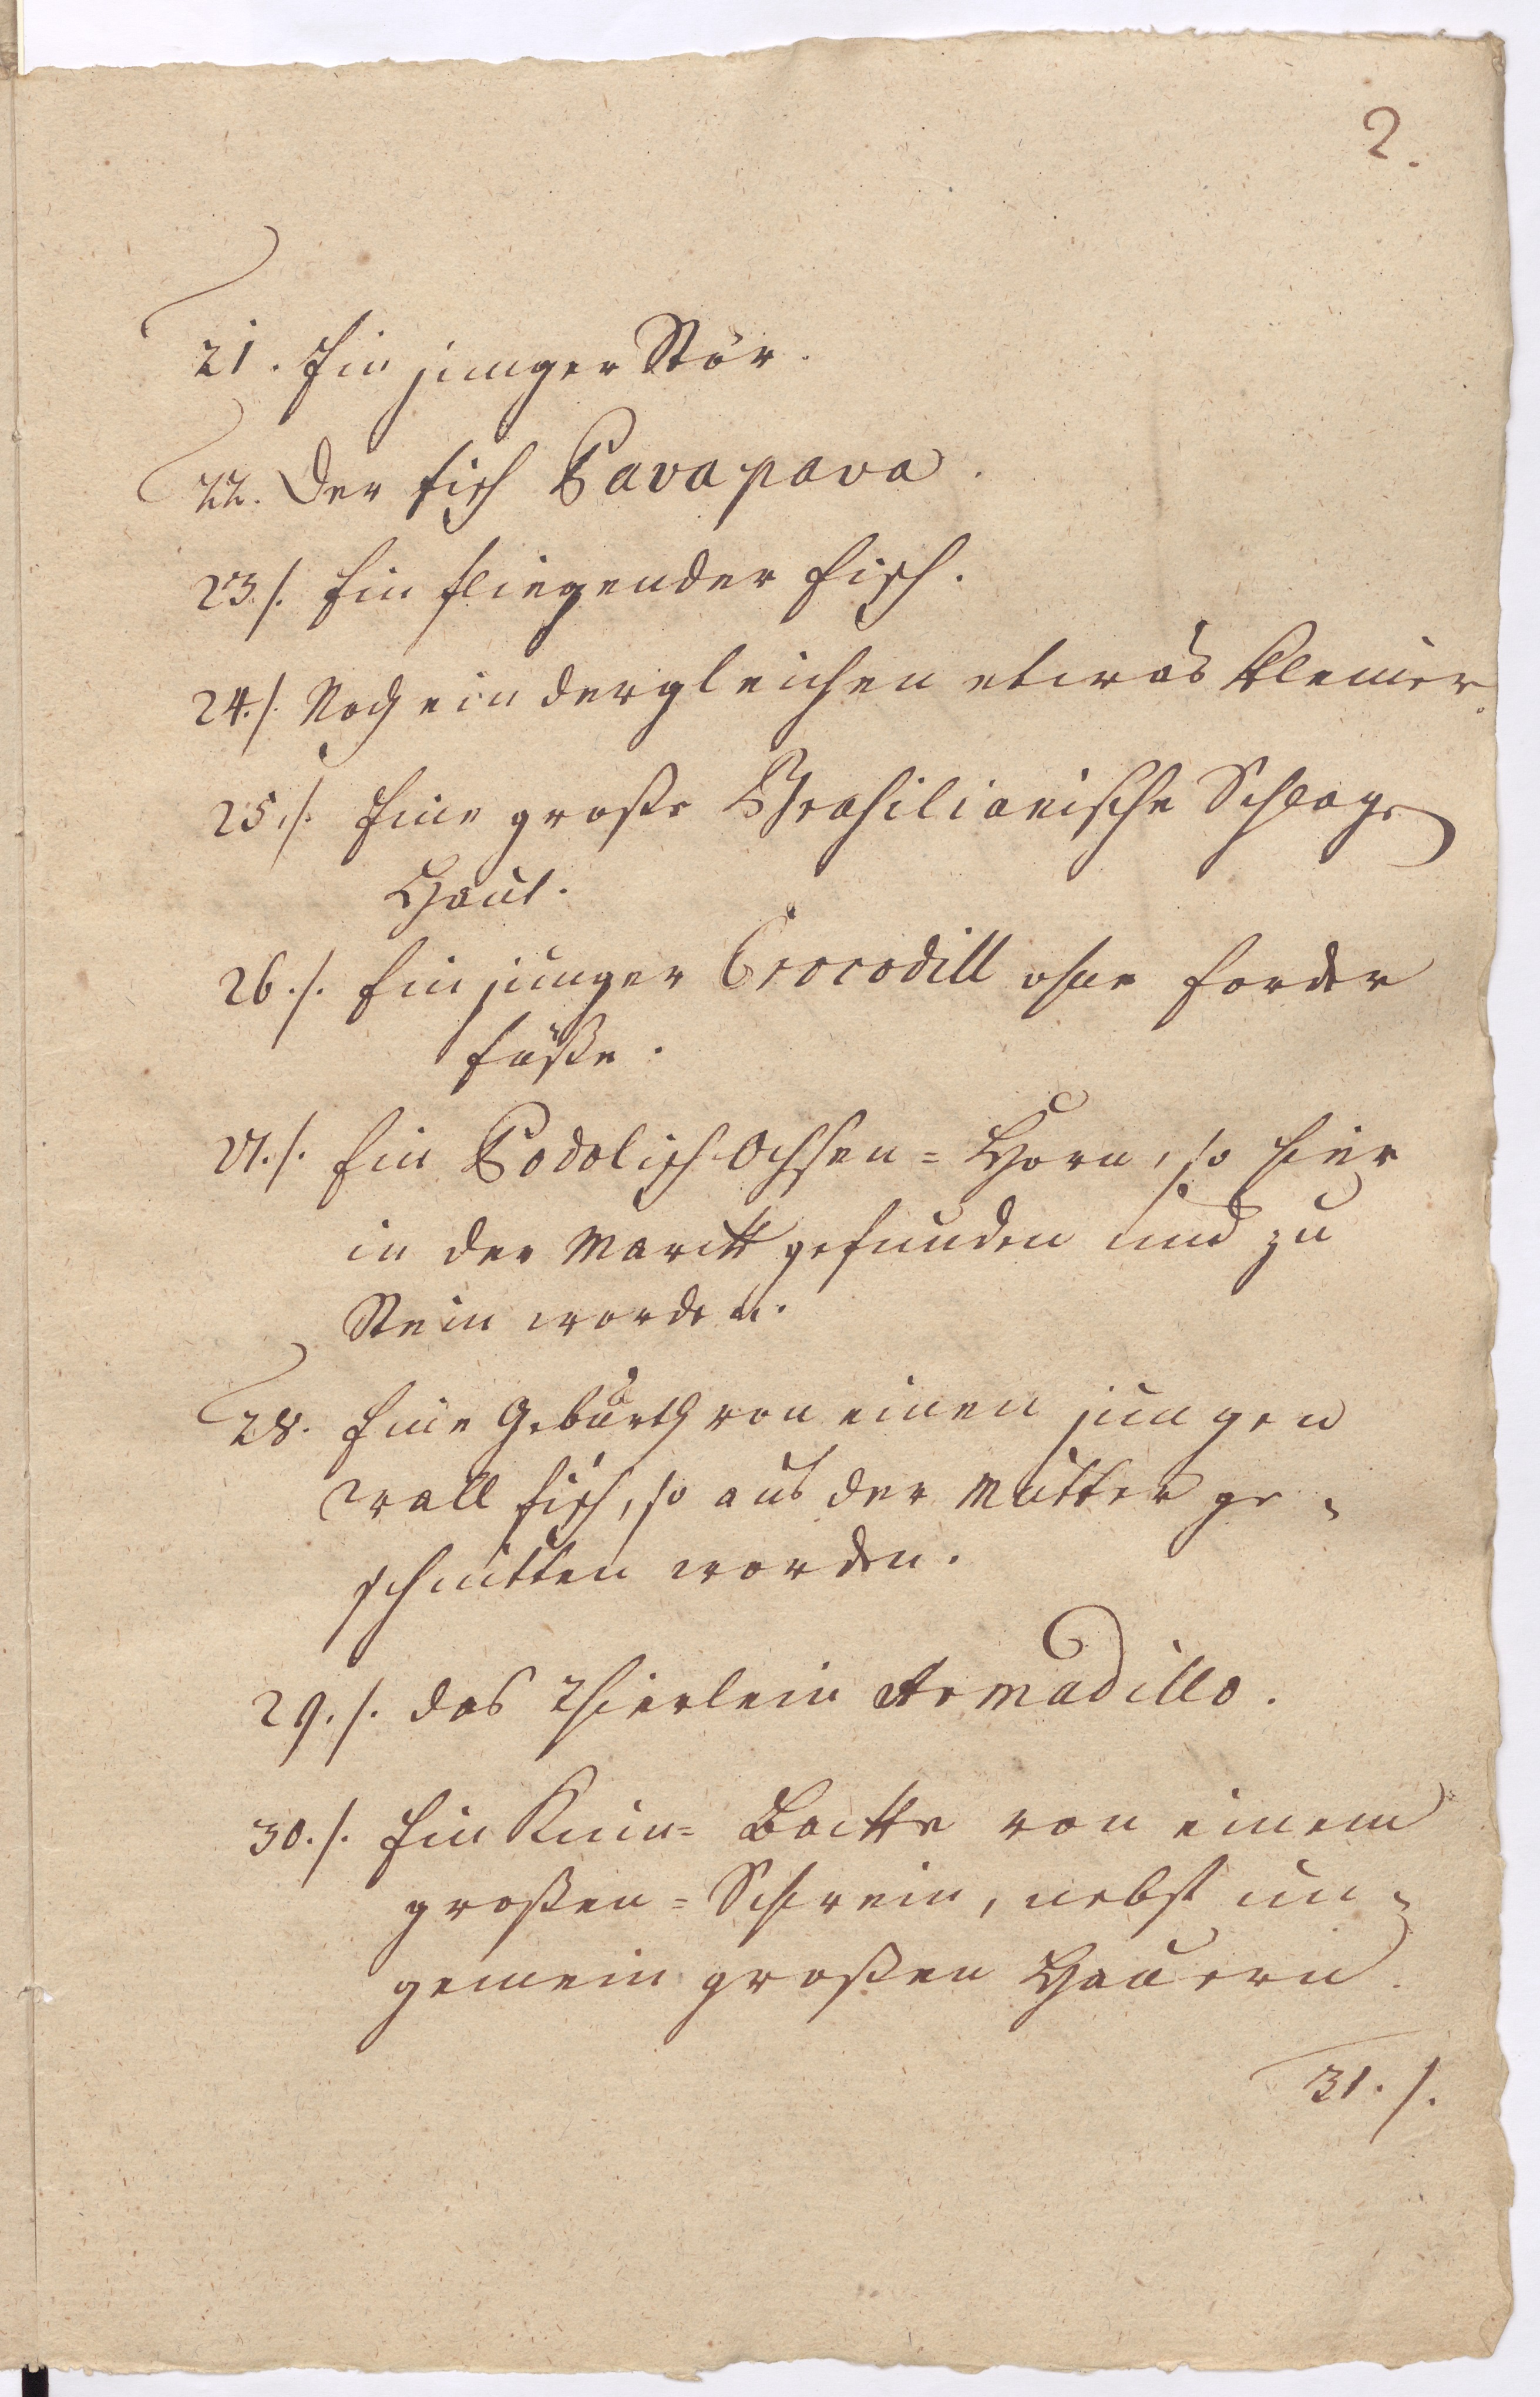 2.
21. Ein junger Stör.
22. Der fisch Pavapava.
23./. Ein fliegender fisch.
24./. Noch ein dergleichen etwas kleiner.
25./. Eine große Brasilianische
Haut.
26./. Ein junger Crocodill ohne forder
füße.
27./. Ein Podolisch Ochsen=Horn, so hier
in der Marck gefunden und zu
Stein worden.
28. Eine Geburth von einen jungen
Wall fisch, so aus der Mutter ge=
schnitten worden.
29./. das Thierlein Armadillo.
30./. Ein Kinn=Backe von einem
großen=Schwein, nebst un=
gemein großen Hauern.
31./.